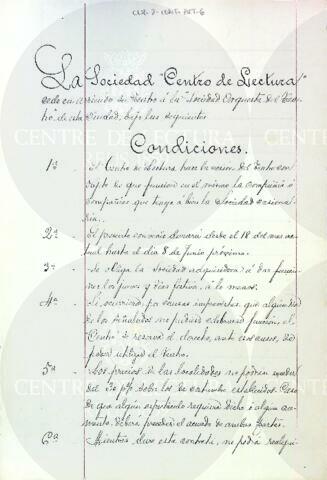 La Sociedad "Centro de Lectura"
cede en al Teatro á la Sociedad Orquesta del Tea-
tro de esta Ciudad, bajo las siguientes
Condiciones.
1ª - El Centro de Lectura hace la cesion del Teatro con
objeto de que funcione en el mismo la Compañía ó
Compañías que tenga á bien la Sociedad
2ª - El presente convenio durará desde el 18 del mes ac-
tual hasta el día 8 de Junio próximo.
3ª - Se obliga la Sociedad adquisidora á dar funcio-
nes los jueves y días festivos, á lo menos.
4ª - Si ocurriese, por causas imprevistas, que alguno de
los días señalados no pudiese celebrarse función, el
Centro se reserva el derecho, ante ese caso, de
poder utilizar el Teatro.
5ª - Los precios de las localidades no podrán exceder
del p% sobre los de costumbre establecidos. Caso
de que algún espectáculo requiera dicho ó algun au-
mento, deberá preceder el acuerdo de ambas partes.
6ª - Mientras dure este contrato, no podrá